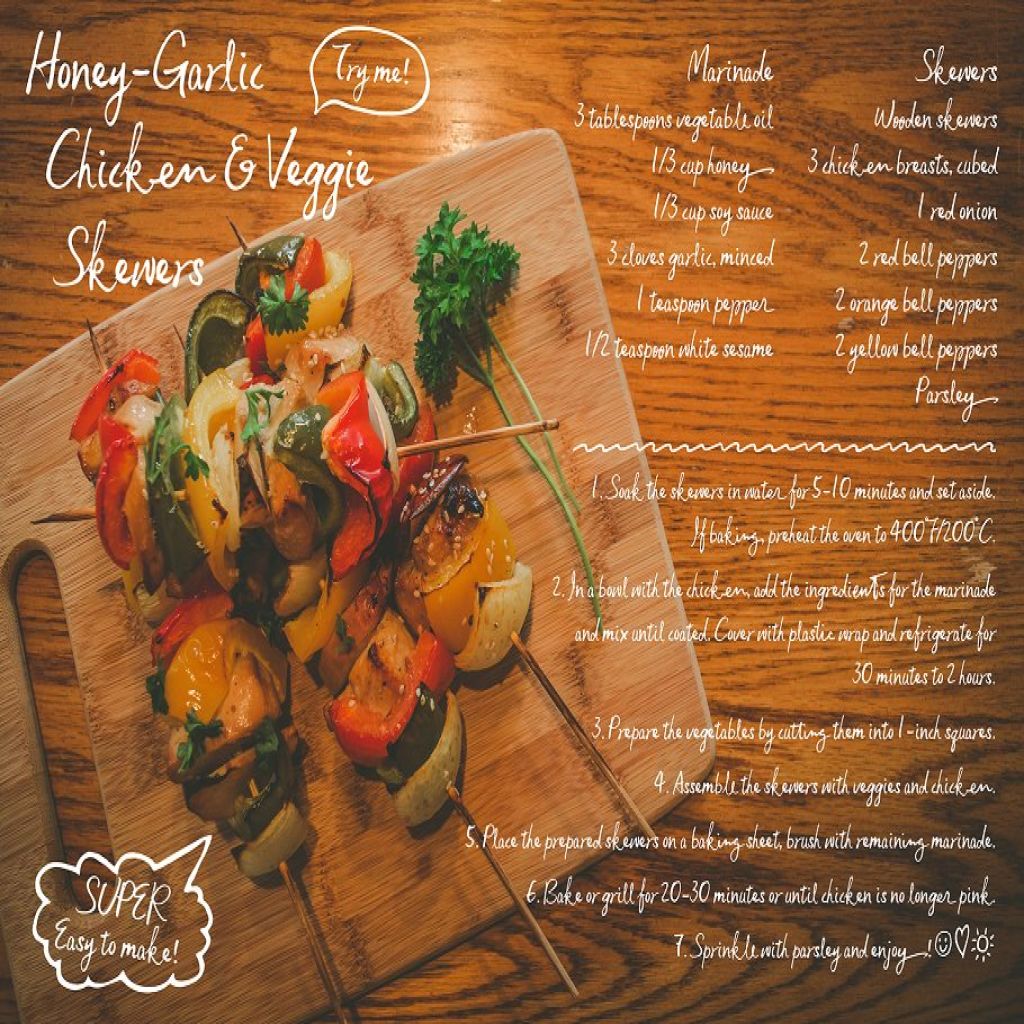 Honey-Garlic
Chicken & Veggie
Skewers
Try me!
Marinade
3 tablespoons vegetable oil
1/3 cup honey
1/3 cup soy sauce
3 cloves garlic, minced
1 teaspoon pepper
1/2 teaspoon white sesame
Skewers
Wooden skewers
3 chicken breasts, cubed
1 red onion
2 red bell peppers
2 orange bell peppers
2 yellow bell peppers
Parsley
1. Soak the skewers in water for 5-10 minutes and set aside.
If baking, preheat the oven to 400°F/200°C.
2. In a bowl with the chicken, add the ingredients for the marinade
and mix until coated. Cover with plastic wrap and refrigerate for
30 minutes to 2 hours.
3. Prepare the vegetables by cutting them into 1-inch squares.
4. Assemble the skewers with veggies and chicken.
5. Place the prepared skewers on a baking sheet, brush with remaining marinade.
6. Bake or grill for 20-30 minutes or until chicken is no longer pink.
7. Sprinkle with parsley and enjoy!
SUPER
Easy to make!